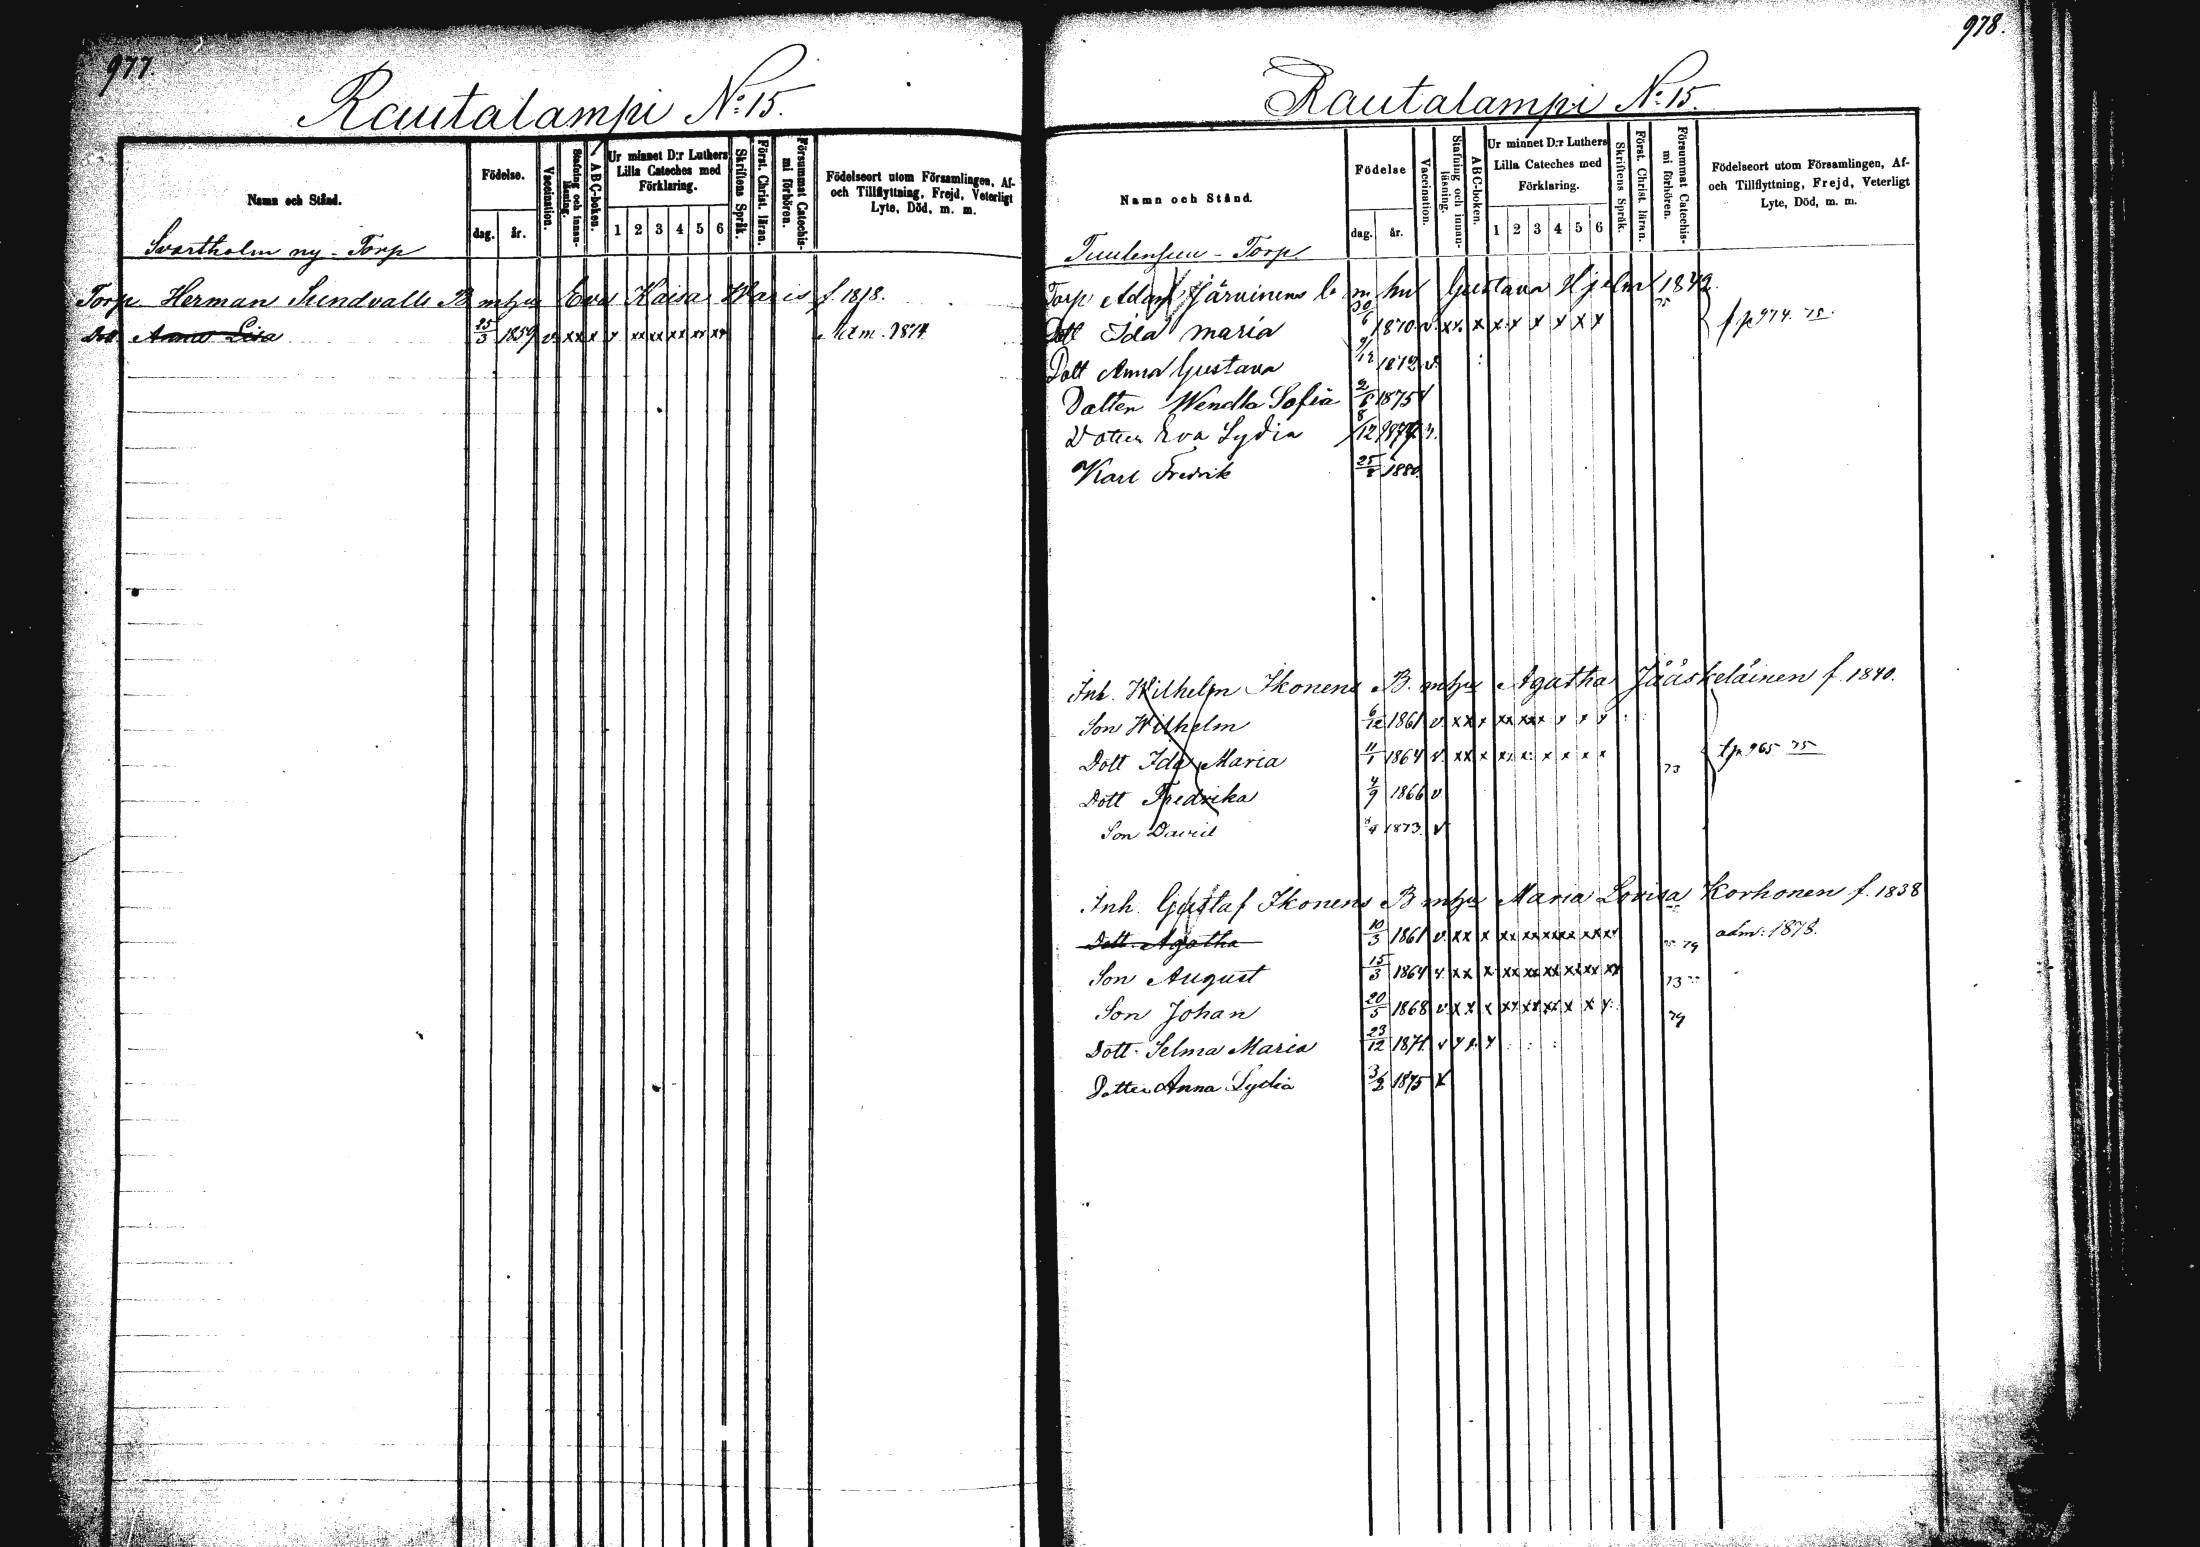 977.
Rautalampi No: 15.
Namn och Stånd.
Födelse.
dag.
år.
Vaccination.
Stafning och innan-läsning.
ABC-boken.
Ur minnet D:r Luthers
Lilla Cateches med
Förklaring.
1 2 3 4 5 6
Skriftens Språk.
Först. Christ. läran.
Försummat Catechis-
mi förhören.
Födelseort utom Församlingen, Af-
och Tillflyttning, Frejd, Veterligt
Lyte, Död, m. m.
Svartholm ny-Torp
Torp Herman Sundvalls B mhu Eva Kaisa Waris f. 1818.
Dott Anna Lisa 25/3 1859 v xx x x xx xx xx xx xx Adm. 1874
978.
Rautalampi No: 15.
Namn och Stånd.
Födelse
dag.
år.
Vaccination.
Stafning och innan-
läsning.
ABC-boken.
Ur minnet D:r Luthers
Lilla Cateches med
Förklaring.
1 2 3 4 5 6
Skriftens Språk.
Först. Christ. läran.
Försummat Catechis-
mi förhören.
Födelseort utom Församlingen, Af-
och Tillflyttning, Frejd, Veterligt
Lyte, Död, m. m.
Torp
Torp Adam Järvinens b. m. hu Gustava Hjelm 1842.
Dott Ida Maria 30/6 1870 v. xx. x x x x x x x 75 fp 974 75
Dott Anna Gustava 9/12 1872 v.
Dotter Wendla Sofia 2/6 1875 v
Dotter Eva Lydia 8/12 1877 v.
Karl Fredrik 25/2 1880.
Inh. Wilhelm Ikonens B. mhu Agatha Jääskeläinen f. 1840.
Son Wilhelm 6/12 1861 v. xx x xx xxx x x x
Dott Ida Maria 11/1 1864 v. xx x xx x x x x x 73 tp 965 75
Dott Fredrika 4/9 1866 v
Son David 1873. v
Inh. Gustaf Ikonens B mhu Maria Lovisa Korhonen f. 1838
Dott Agatha 10/3 1861 v. xx x xx xx xx xx xx xx 79 adm: 1878.
Son August 15/3 1864 v. xx x xx xx xx xx xx xx 73
Son Johan 20/5 1868 v xx x xx xx xx x x x 79
Dott. Selma Maria 23/12 1871 v
Dotter Anna Lydia 3/2 1875 v